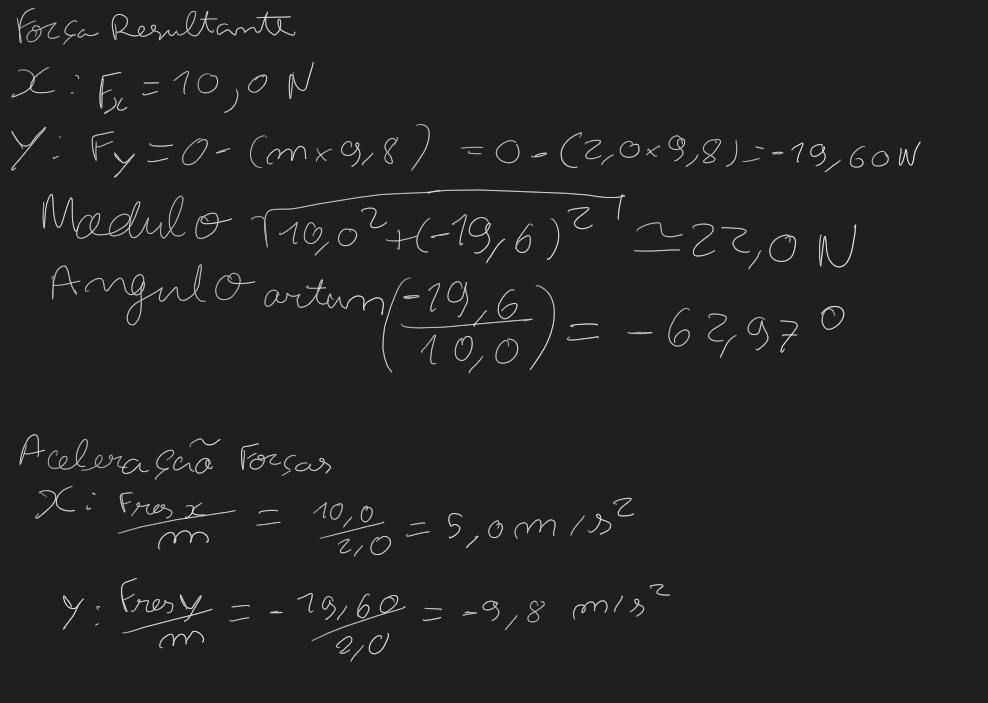 Força Resultante
X: Fx = 10,0 N
Y: Fy = 0 - (m x 9,8) = 0 - (2,0 x 9,8) = -19,60 N
Modulo √10,0² + (-19,6)² ≃ 22,0 N
Angulo artan(-19,6/10,0) = -62,97°
Aceleração Forças
X: Fres x/m = 10,0/2,0 = 5,0 m/s²
Y: Fres y/m = -19,60/2,0 = -9,8 m/s²